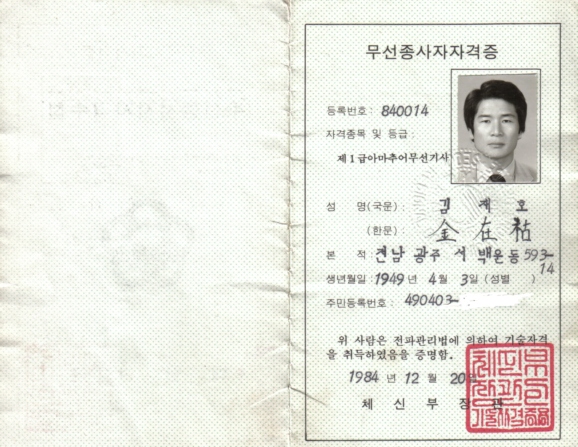 무선종사자자격증
등록번호: 840014
자격종목 및 등급:
제1급아마추어무선기사
성 명(국문): 김 재 호
(한문): 金 在 祜
본 적: 전남 광주 서 백운동 593-
14
생년월일: 1949년 4월 3일 (성별 )
주민등록번호: 490403-
위 사람은 전파관리법에 의하여 기술자격
을 취득하였음을 증명함.
1984년 12월 20일
체 신 부 장 관